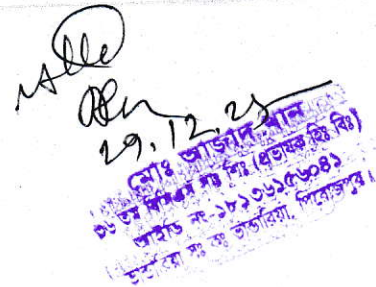 29.12.25
মোঃ আজাদ খান
৩৬ তম বিসিএস সাঃ শিঃ (প্রভাষক হিঃ বিঃ)
আইডি নং-১৮১৩৬১৫৬০৪১
ভান্ডারিয়া সঃ কঃ ভান্ডারিয়া, পিরোজপুর।